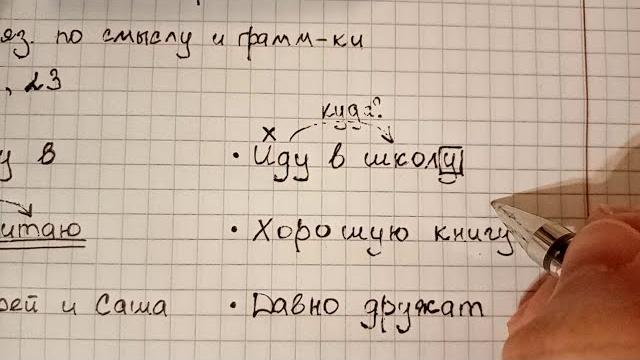 яз. по смыслу и грамм-ки
, 23
куда?
х
у в • Иду в школу
итаю • Хорошую книгу
рей и Саша • Давно дружат